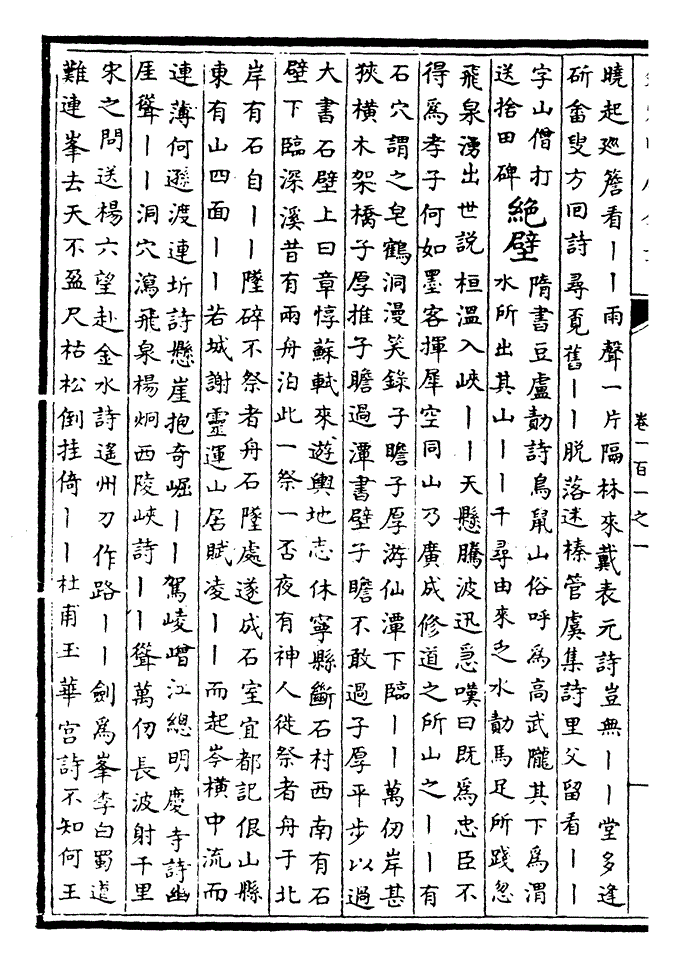 卷一百一之一
曉起廵簷看丨丨雨聲一片隔林來戴表元詩豈無丨丨堂多逢
斫畬叟方回詩尋覓舊丨丨脱落迷榛管虞集詩里父留看丨丨
字山僧打
送捨田碑
絶壁
隋書豆盧勣詩鳥鼠山俗呼為高武隴其下為渭
水所出其山丨丨千尋由來乏水勣馬足所踐忽
飛泉湧出世説桓温入峽丨丨天懸騰波迅急嘆曰既為忠臣不
得為孝子何如墨客揮犀空同山乃廣成修道之所山之丨丨有
石穴謂之皂鶴洞漫笑錄子瞻子厚游仙潭下臨丨丨萬仞岸甚
狹横木架橋子厚推子瞻過潭書壁子瞻不敢過子厚平步以過
大書石壁上曰章惇蘇軾來遊輿地志休寧縣斷石村西南有石
壁下臨深溪昔有兩舟泊此一祭一否夜有神人徙祭者舟于北
岸有石自丨丨墜碎不祭者舟石墜處遂成石室宜都記佷山縣
東有山四面丨丨若城謝靈運山居賦凌丨丨而起岑横中流而
連薄何遜渡連圻詩懸崖抱奇崛丨丨駕崚嶒江總明慶寺詩幽
厓聳丨丨洞穴瀉飛泉楊炯西陵峽詩丨丨聳萬仞長波射千里
宋之問送楊六望赴金水詩遙州刀作路丨丨劍為峯李白蜀道
難連峯去天不盈尺枯松倒挂倚丨丨杜甫玉華宫詩不知何王